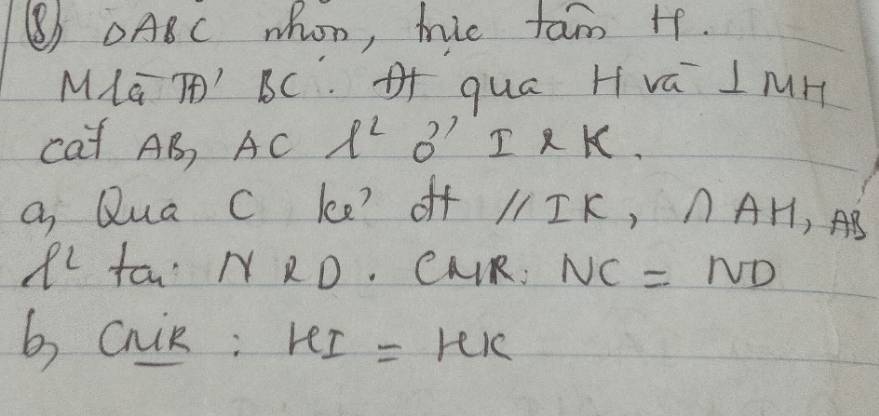 8) ΔABC nhọn, trực tâm H.
M là TĐ' BC. Đt qua H và ⊥ MH
cắt AB, AC l² ở I & K.
a, Qua C kẻ đt // IK, ∩ AH, AB
l² tại N & D. CMR: NC = ND
b, CMR : HI = HK